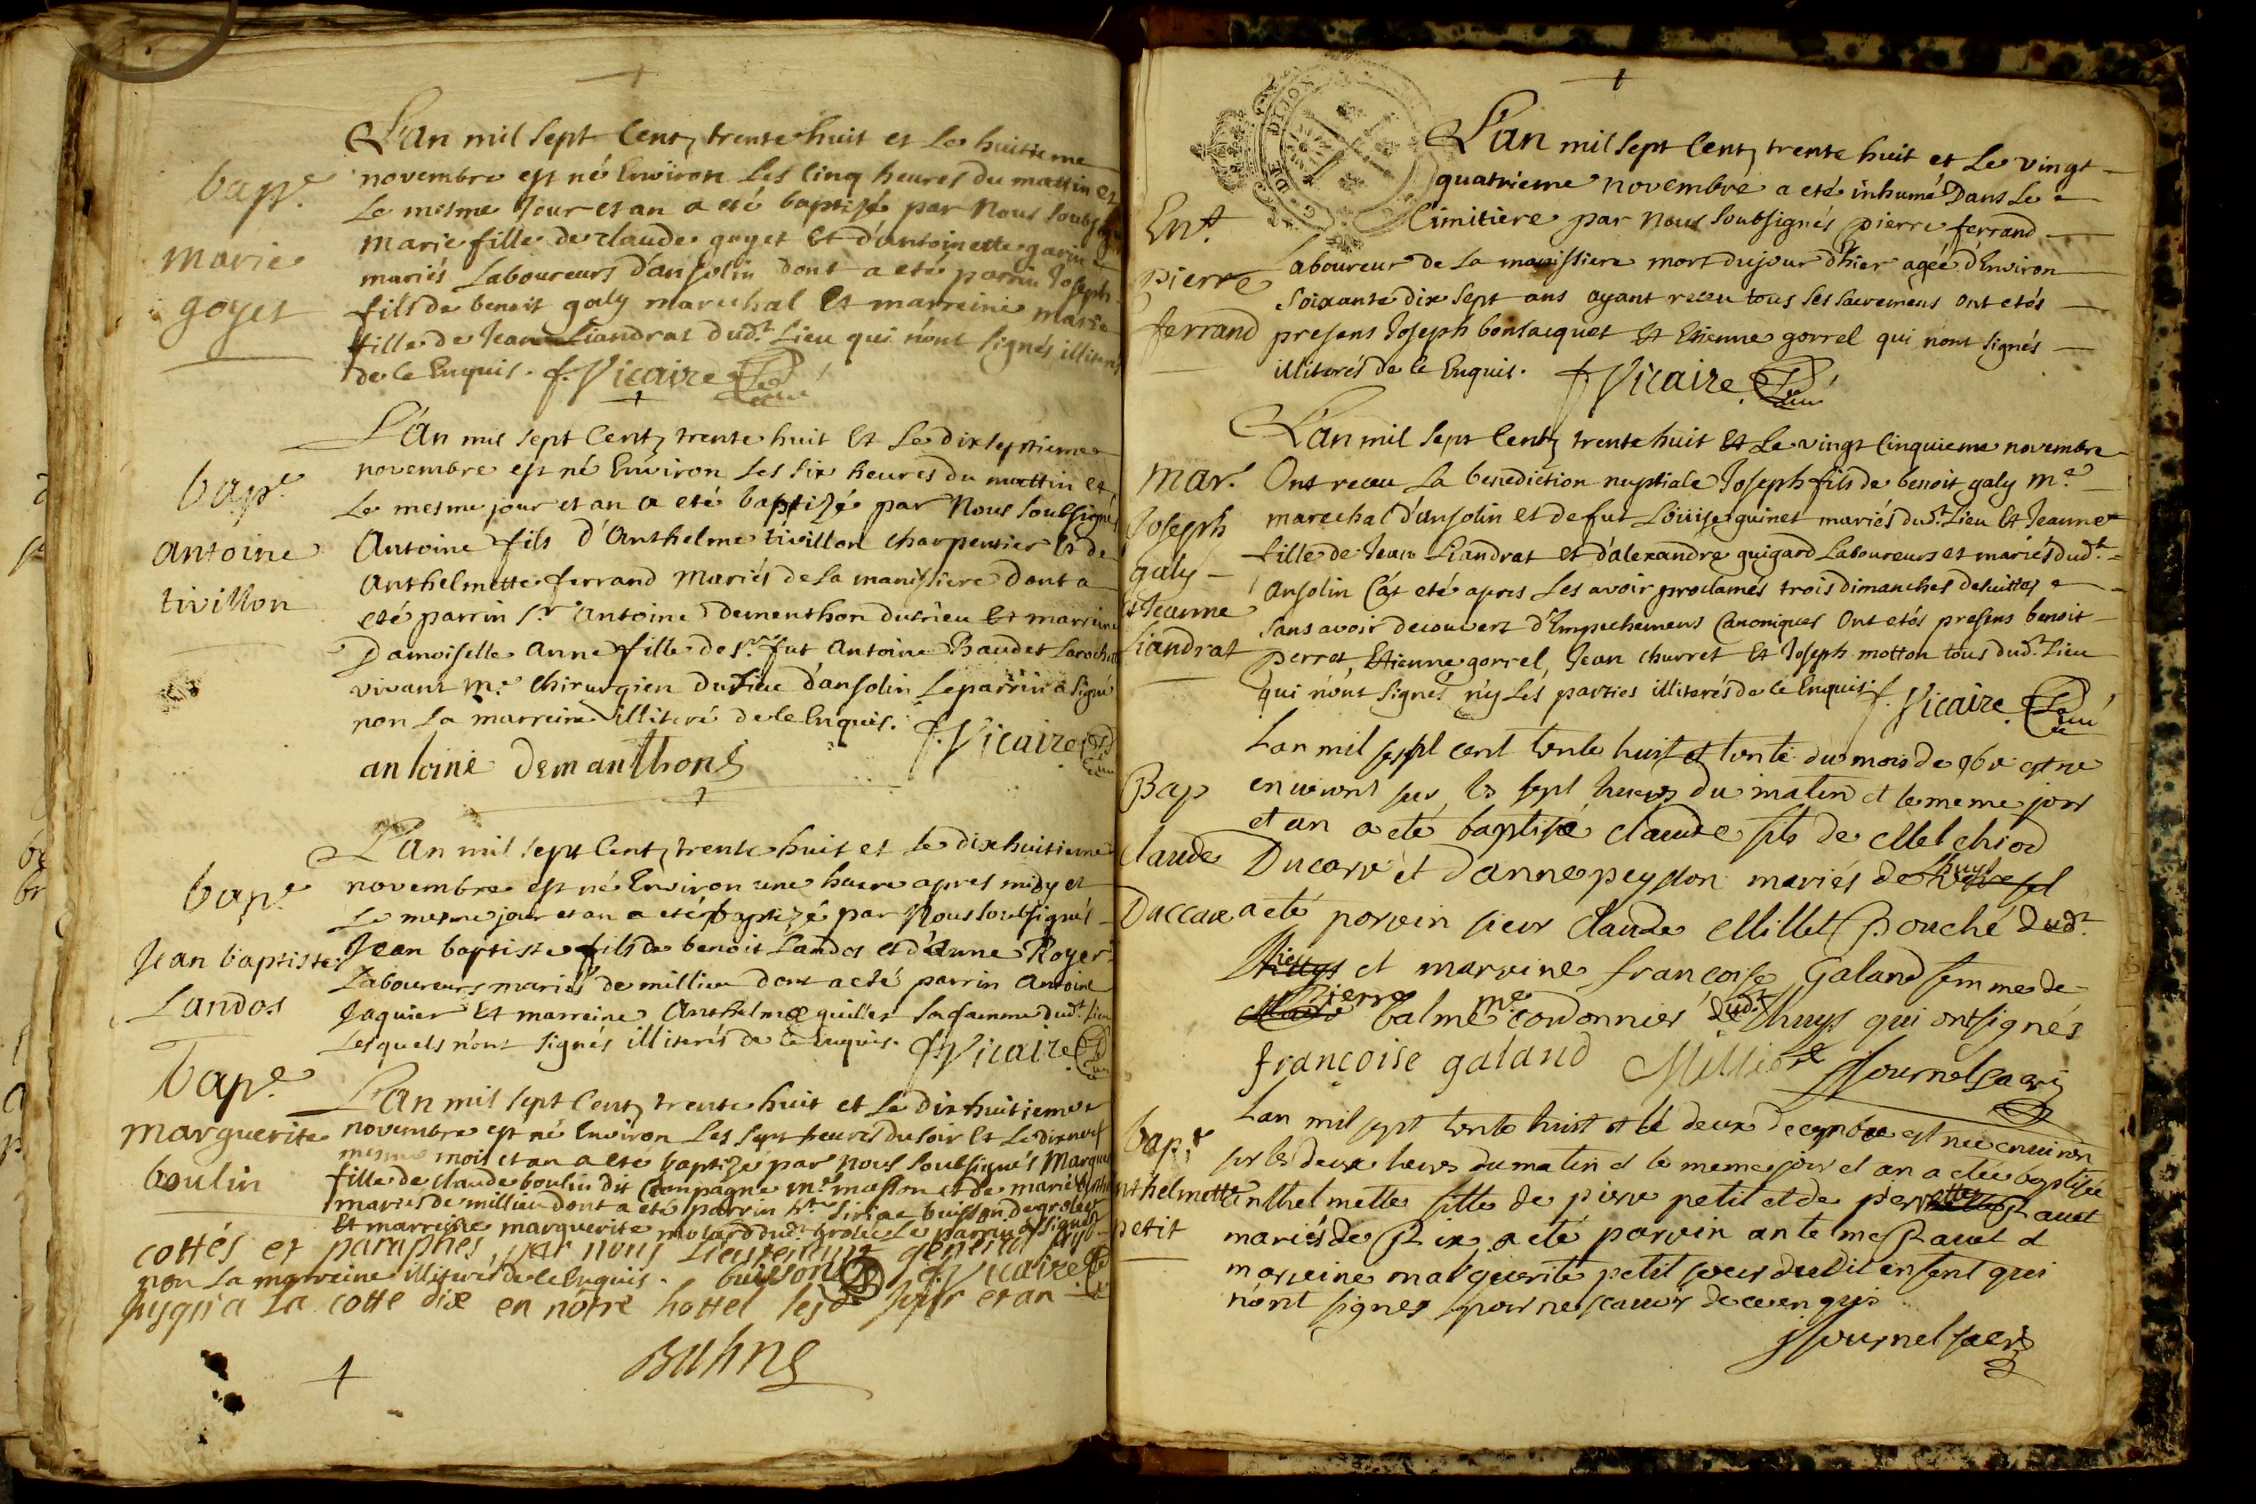 L'an mil sept Cent trente huit et le huitieme
bap.e
novembre est né Environ les cinq heures du mattin et
le mesme Jour et an a eté baptizé par Nous soubs
Marie
Marie fille de claude goyet Et d'antoinette garin
mariés Laboureurs d'ansolin dont a eté parrin Joseph
goyet
fils de benoit galy marechal Et marreine marie
fille de Jean Liandrat dud.t Lieu qui n'ont signés illiterés
de ce Enquis. f. Vicaire
L'an mil sept Cent trente huit Et le dix septieme
bap.e
novembre est né Environ les six heures du mattin et
le mesme jour et an a eté baptizé par Nous soubsignés
antoine
Antoine fils d'Anthelme tivillon charpentier Et de
tivillon
Anthelmette ferrand Mariés de la manissiere Dont a
eté parrin s.r Antoine dementhon dud lieu Et marreine
Damoiselle Anne fille de s.r fut Antoine Baudet
vivant m.e chirurgien dud lieu d'ansolin Le parrin a signé
non la marreine illiteré de ce Enquis. f. Vicaire
antoine demanthon
L'an mil sept Cent trente huit et le dix huitieme
bap.e
novembre est né Environ une heure apres midy et
le mesme jour et an a eté baptizé par Nous soubsignés
Jean baptiste
Jean baptiste fils de benoit Landos et d'Anne Royer
Laboureurs mariés de millieu dont a eté parrin Antoine
Landos
Jaquier Et marreine Anthelme quillet sa famme dud.t Lieu
Lesquels n'ont signés illiterés de ce Enquis. f. Vicaire
bap.e
L'an mil sept Cent trente huit et le dix huitieme
marguerite
novembre est né Environ Les sept heures du soir Et Le dix neuf
mesme mois et an a eté baptizé par nous soubsignés Margue
boulin
fille de claude boulin dit Champagne m.e masson et de marie
mariés de millieu dont a eté parrin s.r Siriac buisson de groleé
Et marreine marguerite molard dud.t grolée Le parrin a signé
cottés et paraphés par nous Lieutenant general
non la marreine illiteré de ce Enquis. buisson f. Vicaire
Jusqu'a la cotte dix en nôtre hottel les d. jour et an
Buhne
G. DE DIJON
L'an mil sept Cent trente huit et le vingt
quatrieme novembre a eté inhumé Dans Le
Ent.
Cimitiere par Nous soubsignés pierre ferrand
pierre
Laboureur de la manissiere mort du jour d'hier agéé d'Environ
soixante dix sept ans ayant receu tous ses sacremens ont etés
ferrand
presens Joseph bonjacquet Et Etienne gorrel qui n'ont signés
illiterés de ce Enquis. f. Vicaire
L'an mil sept Cent trente huit Et Le vingt Cinquieme novembre
mar.
Ont receu la benediction nuptiale Joseph fils de benoit galy m.e
Joseph
marechal d'ansolin et de fut Loüise guinet mariés dud.t Lieu Et Jeanne
galy
fille de Jean Liandrat et d'alexandre guigard Laboureurs et mariés dud.t
Et Jeanne
Ansolin Ca's eté apres les avoir proclamés trois dimanches desuittes
Liandrat
sans avoir decouvert d'Empechemens Canoniques Ont etés presens benoit
perret, Etienne gorrel, Jean churret Et Joseph motton tous dud.t Lieu
qui n'ont signés n'y Lés parties illiterés de ce Enquis. f. Vicaire
Lan mil sept cent trente huit et trente du mois de 9bre est ne
Bap
environt sur les sept heures du matin et le meme jour
et an a eté baptisé claude fils de Melchiod
claude
Ducarre et d'anne peysson mariés de huys
Duccare
a eté porrein sieur Claude Millet Bouché dud.t
huys et marreine francoise Galand femme de
pierre balme m.e cordonnier dud.t huys qui ont signés
françoise galand Milliet J Journel Sacri
Lan mil sept trente huit et le deux decembre est née environ
bap.e
sur les deux heures du matin et le meme jour et an a etée baptisée
Anthelmette
Anthelmette fille de pierre petit et de pierrette Ravet
petit
mariés de Rix a eté porrein antelme Ravet et
marreine marguerite petit soeur dudit enfent qui
n'ont signes pour ne scavoir de ce enquis
J Journel sacri